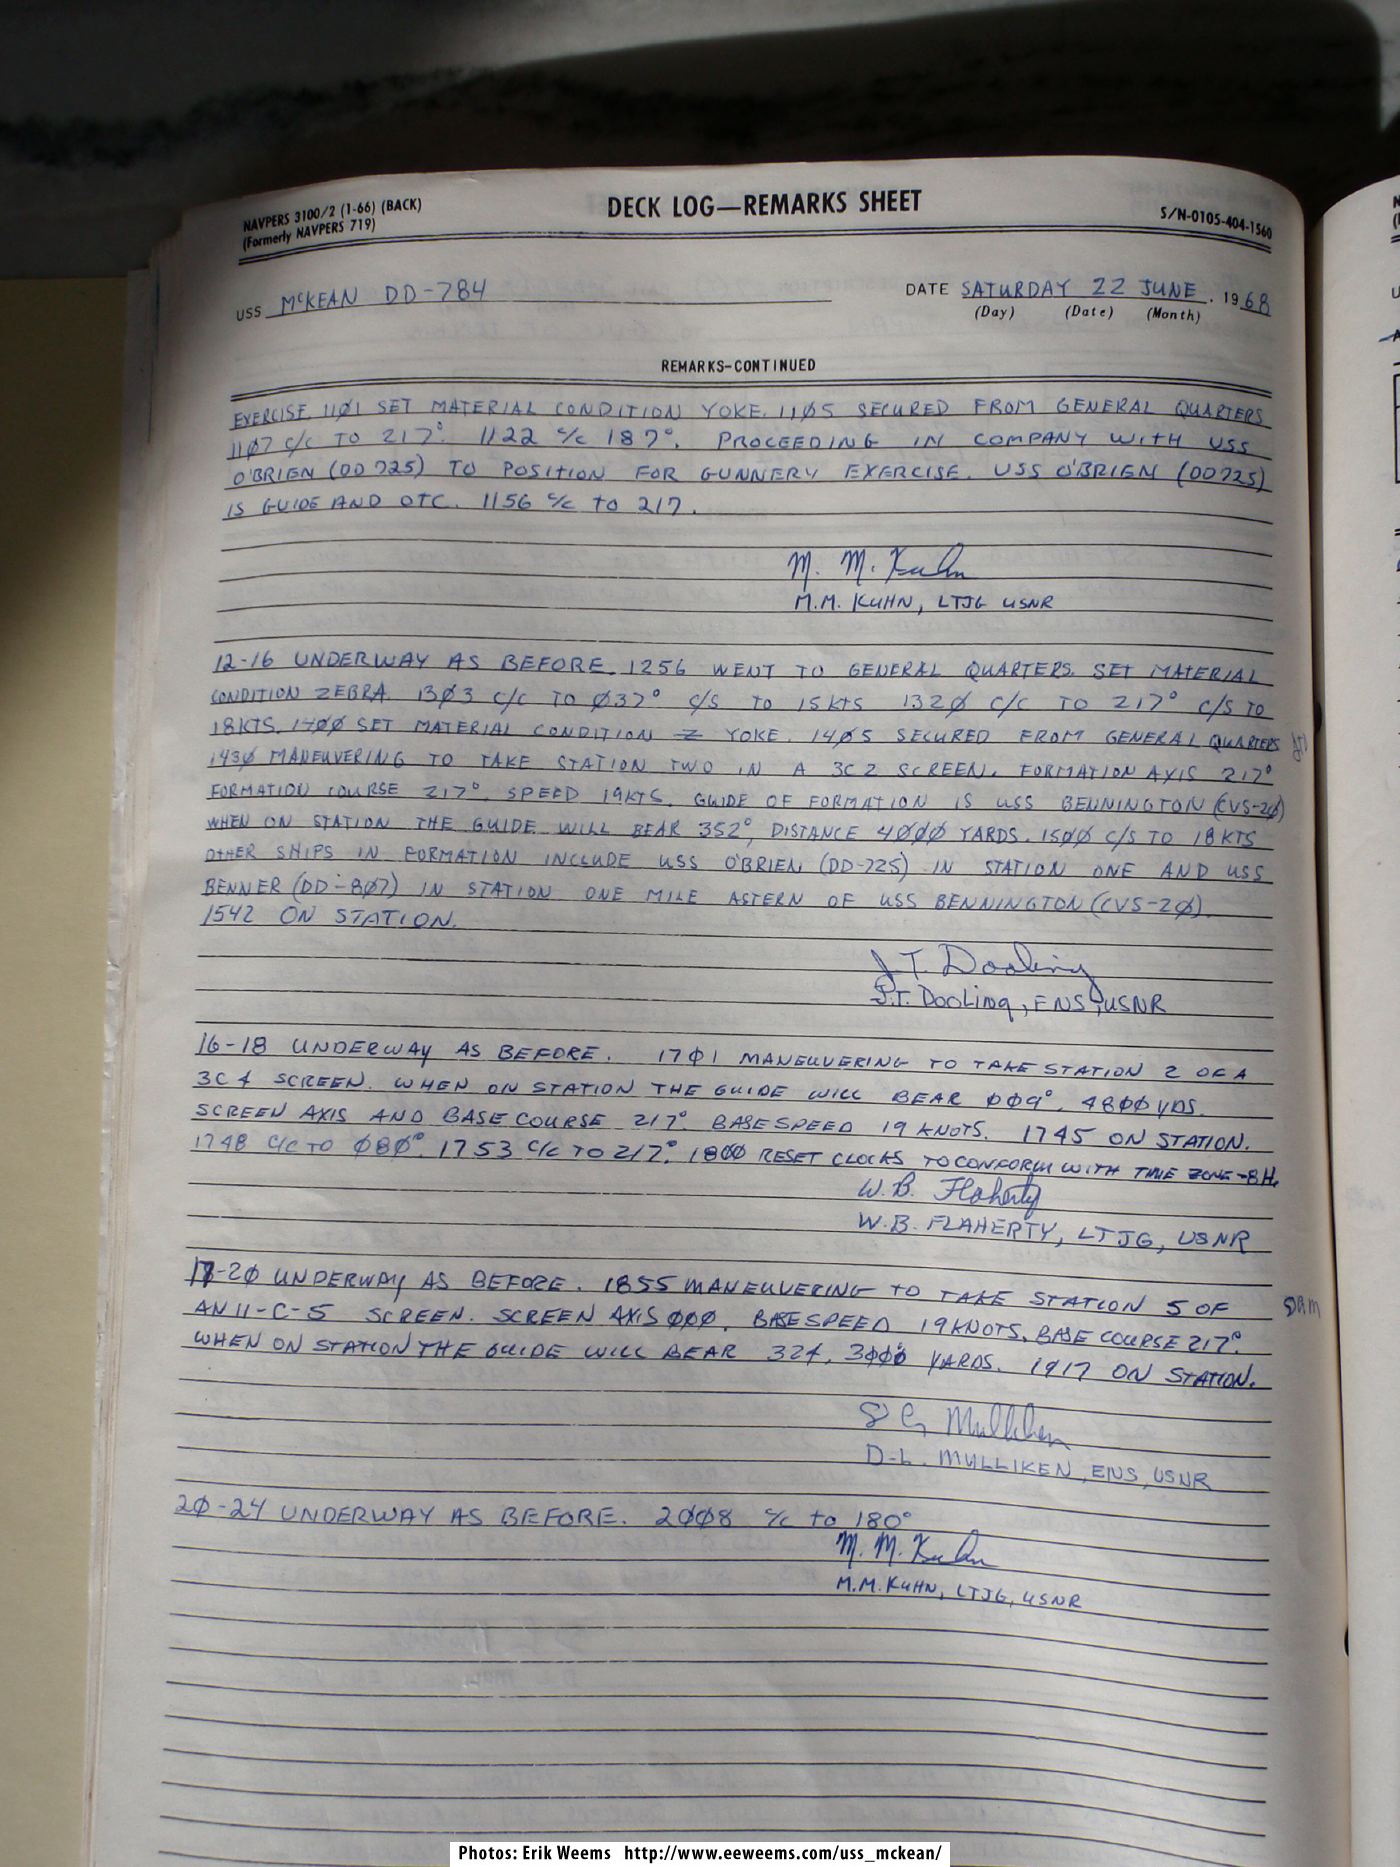 NAVPERS 3100/2 (1-66) (BACK)
(Formerly NAVPERS 719)
DECK LOG—REMARKS SHEET
S/N-0105-404-1560
USS McKEAN DD-784
DATE SATURDAY 22 JUNE, 1968
(Day) (Date) (Month)
REMARKS-CONTINUED
EXERCISE. 11Ø1 SET MATERIAL CONDITION YOKE. 11Ø5 SECURED FROM GENERAL QUARTERS
11Ø7 C/C TO 217° 1122 C/C 187°. PROCEEDING IN COMPANY WITH USS
O'BRIEN (DD725) TO POSITION FOR GUNNERY EXERCISE. USS O'BRIEN (DD725)
IS GUIDE AND OTC. 1156 C/C to 217.
M. M. Kuhn
M.M. KUHN, LTJG USNR
12-16 UNDERWAY AS BEFORE. 1256 WENT TO GENERAL QUARTERS. SET MATERIAL
CONDITION ZEBRA. 13Ø3 C/C TO Ø37° C/S TO 15KTS 132Ø C/C TO 217° C/S TO
18KTS. 14ØØ SET MATERIAL CONDITION YOKE. 14Ø5 SECURED FROM GENERAL QUARTERS
143Ø MANEUVERING TO TAKE STATION TWO IN A 3C2 SCREEN. FORMATION AXIS 217°
FORMATION COURSE 217°. SPEED 19KTS. GUIDE OF FORMATION IS USS BENNINGTON (CVS-2Ø)
WHEN ON STATION THE GUIDE WILL BEAR 352°, DISTANCE 4ØØØ YARDS. 15ØØ C/S TO 18KTS
OTHER SHIPS IN FORMATION INCLUDE USS O'BRIEN (DD-725) IN STATION ONE AND USS
BENNER (DD-8Ø7) IN STATION ONE MILE ASTERN OF USS BENNINGTON (CVS-2Ø).
1542 ON STATION.
J T. Dooling
J.T. DOOLING, ENS, USNR
16-18 UNDERWAY AS BEFORE. 17Ø1 MANEUVERING TO TAKE STATION 2 OF A
3C4 SCREEN. WHEN ON STATION THE GUIDE WILL BEAR ØØ9°, 48ØØ YDS.
SCREEN AXIS AND BASE COURSE 217° BASE SPEED 19 KNOTS. 1745 ON STATION.
1748 C/C TO Ø8Ø°. 1753 C/C TO 217°. 18ØØ RESET CLOCKS TO CONFORM WITH TIME ZONE -8H.
W.B. Flaherty
W.B. FLAHERTY, LTJG, USNR
18-2Ø UNDERWAY AS BEFORE. 1855 MANEUVERING TO TAKE STATION 5 OF
AN 11-C-5 SCREEN. SCREEN AXIS ØØØ, BASE SPEED 19 KNOTS, BASE COURSE 217°.
WHEN ON STATION THE GUIDE WILL BEAR 324, 3ØØØ YARDS. 1917 ON STATION.
D L Mulliken
D.L. MULLIKEN, ENS, USNR
2Ø-24 UNDERWAY AS BEFORE. 2ØØ8 C/C to 180°
M. M. Kuhn
M.M. KUHN, LTJG, USNR
Photos: Erik Weems http://www.eeweems.com/uss_mckean/